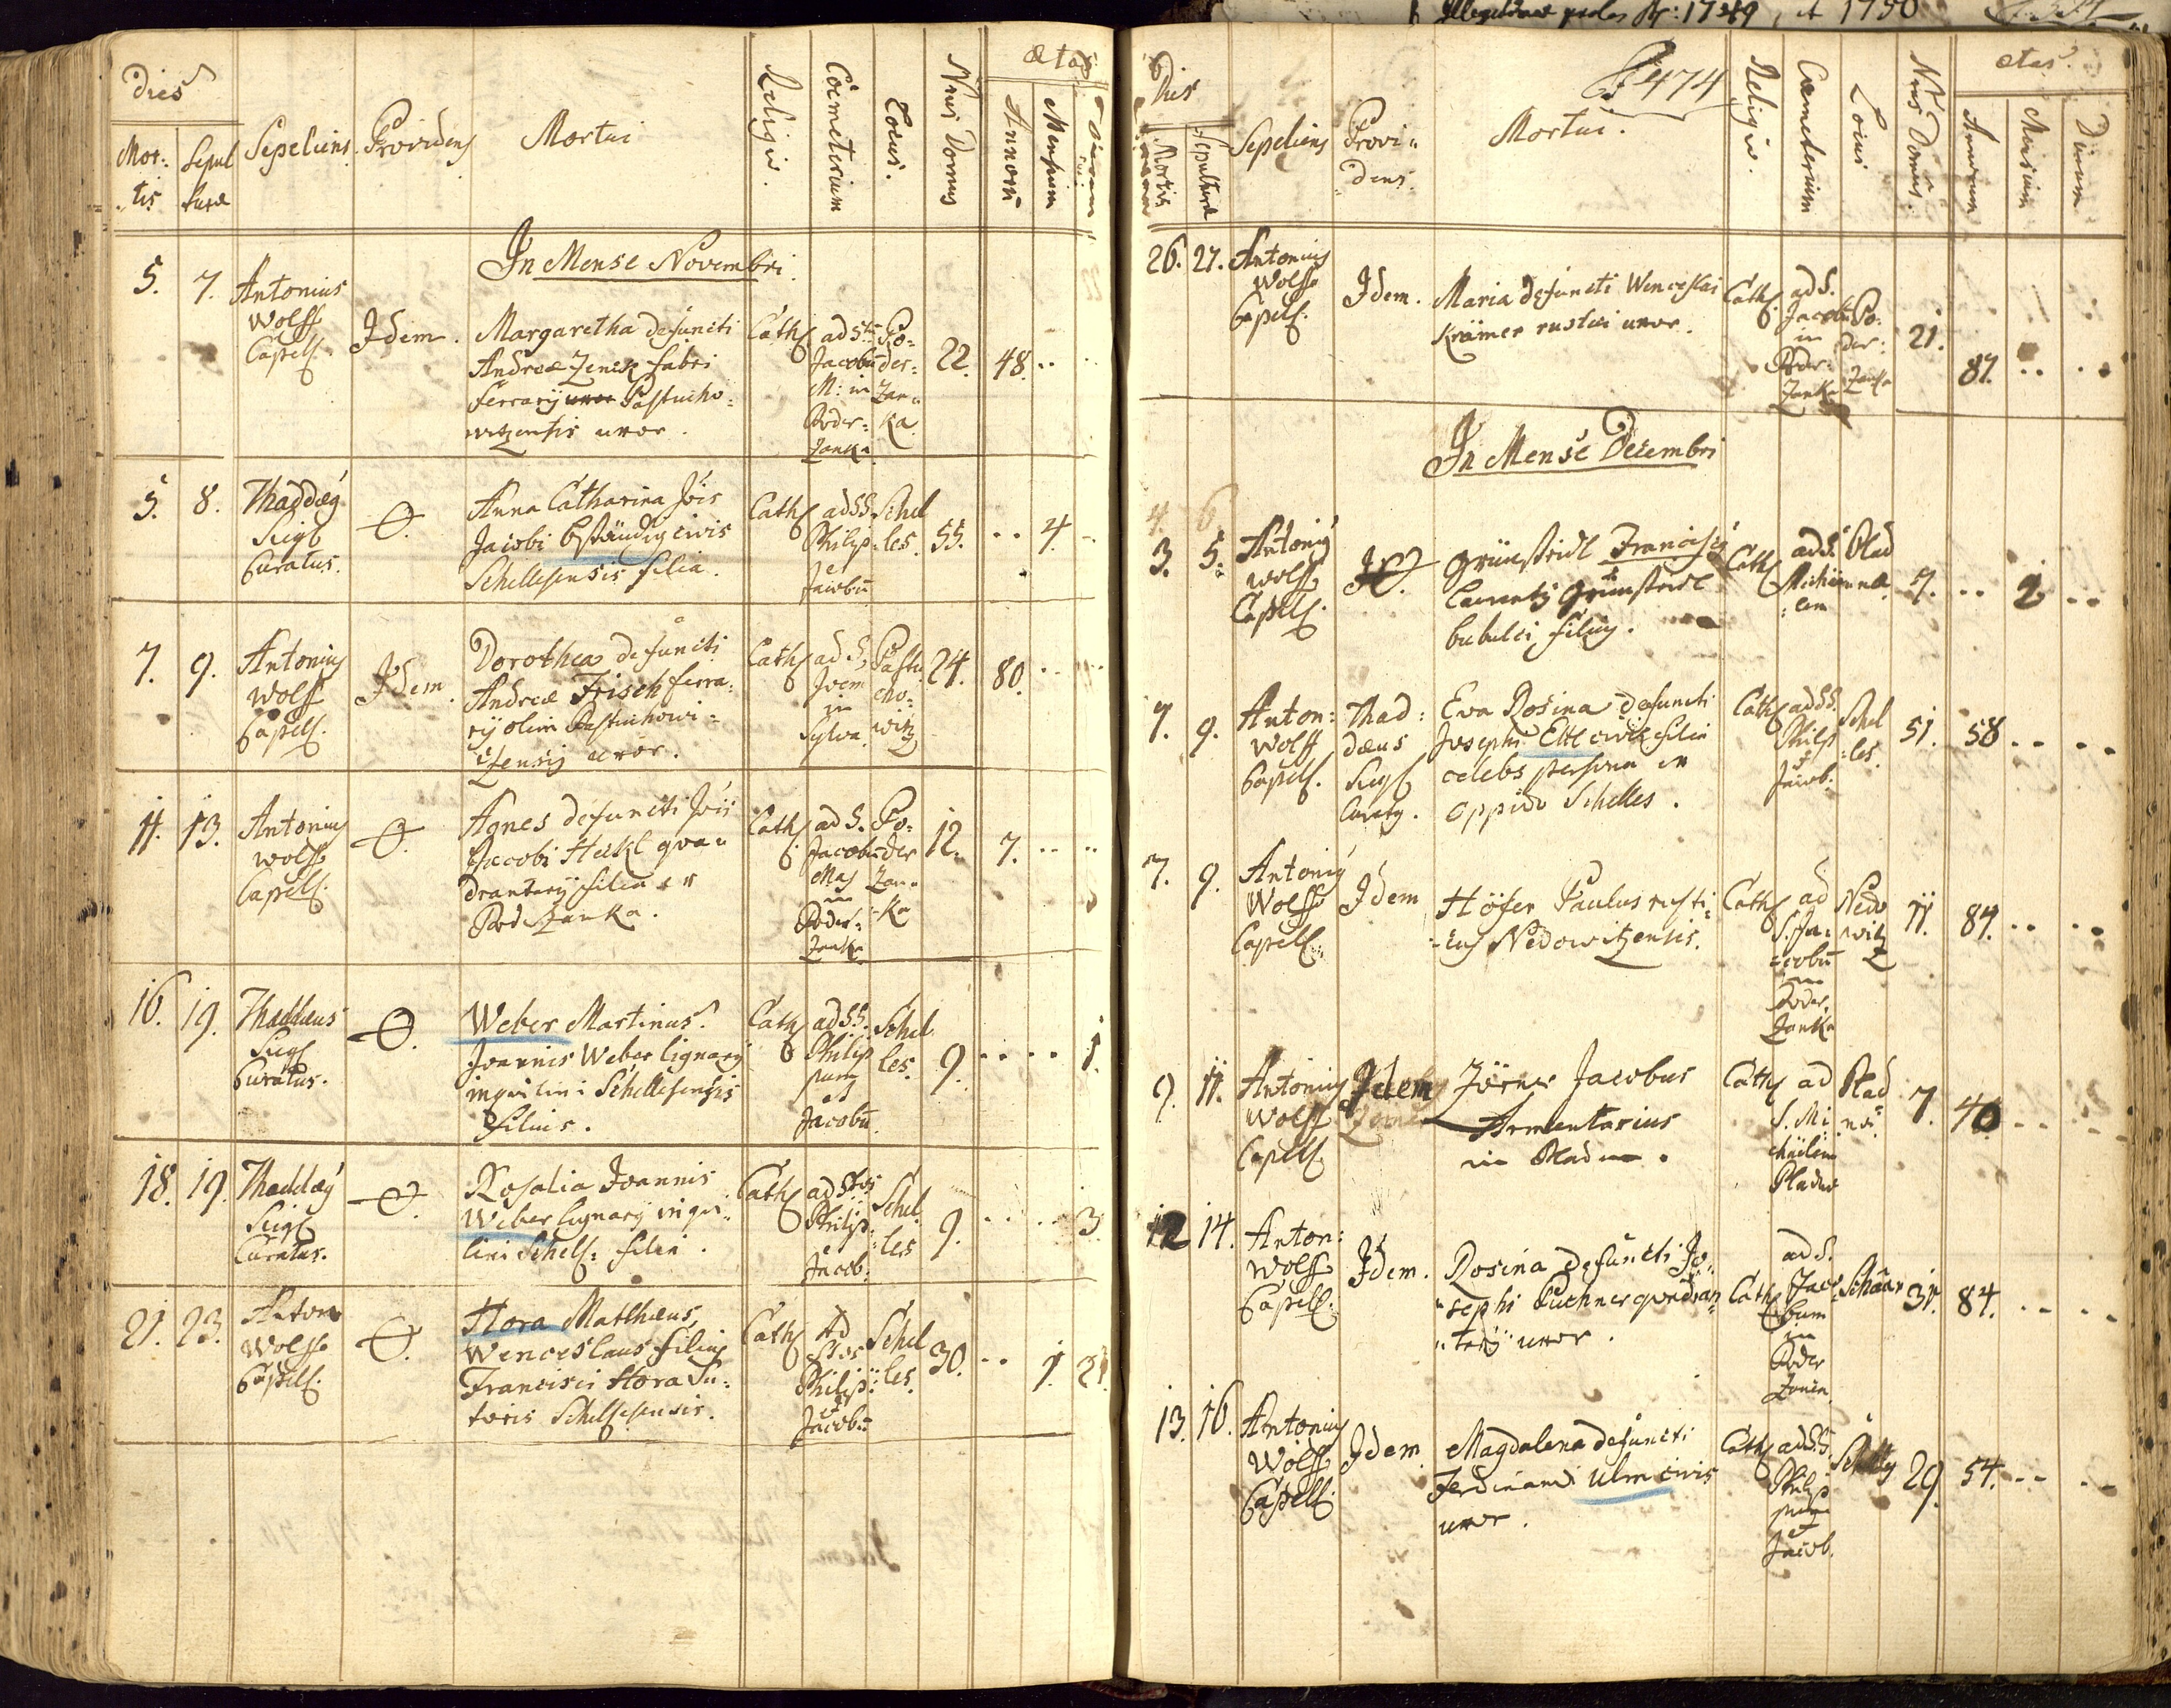 Dies
Mor: tis
Sepul turæ
Sepeliens
Providens
Mortui
Religio.
Coemeterium
Locus.
Nrus Domus
Ætas
Annorū
Mensium
Dierum
In Mense Novembri
5. 7. Antonius
Wolff
Capell.
Idem.
Margaretha defuncti
Andreæ Zenck fabri
ferrarij Pastucho=
witzensis uxor.
Cath
ad Stū
Jacobū
M: in
Poder=
Zanka
Po=
der=
Zan=
ka
22. 48. ..
5. 8. Thaddæg
Siegl
Curatus.
O.
Anna Catharina Jōis
Jacobi Beständig civis
Schellesensis filia.
Cath
ad SS
Philip
et
Jacobū
Schel
les.
55. .. 4. -
7. 9. Antonig
Wolff
Capell.
Idem.
Dorothea defuncti
Andreæ Frisch ferra=
rij olim Pastuchowi=
tzensis uxor.
Cath
ad S.
Joem
in
Sylva
Pastu
cho=
witz
24. 80. ..
11. 13. Antonig
Wolff
Capell.
O.
Agnes defuncti Jōis
Jacobi Heikl qua=
drantarij filia in
Poderzanka.
Cath
ad S.
Jacobū
Maj
in
Poder=
Zanka
Po=
der
Zan=
ka
12. 7. .. ..
16. 19. Thaddæus
Siegl
Curatus.
O.
Weber Martinus.
Joannis Weber lignarij
inquilini Schellesensis
filius.
Cath
ad SS.
Philip
pum
et
Jacobū.
Schel
les.
9. .. .. 1.
18. 19. Thaddæg
Siegl
Curatus.
O.
Rosalia Joannis
Weber lignarij inqui=
lini Schell: filia.
Cath
ad Stos
Philip.
et
Jacob.
Schel
les
9. .. .. 3.
21. 23. Anton
Wolff
Capell.
O.
Hora Matthæus,
Wenceslaus filius
Francisci Hora Su=
toris Schellesensis.
Cath
Ad
Stos
Philip:
et
Jacobū
Schel
les.
30. .. 1. 21.
474
Dies
Mortis
Sepulturæ
Sepeliens
Provi=
dens.
Mortui.
Religio.
Cœmeterium
Locus
Nrus Domus.
Ætas.
Annorum
Mensium
Dierum
26. 27. Antonius
Wolff
Capell.
Idem.
Maria defuncti Wenceslai
Krämer rustici uxor.
Cath
ad S.
Jacobū
in
Poder=
Zanka
Po=
der=
Zanka
21. 87. .. ..
In Mense Decembri
4. 6
3. 5. Antonig
Wolff
Capell.
O.
Grünsteidl Franciscg
Laurentij Grünsteidl
bubulci filius.
Cath
ad S.
Michae
lem
Blad
næ.
7. .. 2 ..
7. 9. Anton:
Wolff
Capell.
Thad:
dæus
Siegl
Curatg.
Eva Rosina defuncti
Josephi Ettl civis filia
celebs persona in
oppido Schelles.
Cath
ad SS.
Philip
et
Jacob.
Schel
les.
51. 58 .. ..
7. 9. Antonig
Wolff
Capell.
Idem
Höfer Paulus rusti=
cus Nedowitzensis.
Cath
ad
S. Ja=
cobū
in
Poder.
Zanka
Nedo
wit
z
11. 84. .. ..
9. 11. Antonius
Wolff
Capell.
Idem
Zörner Jacobus
Armentarius
in Bladn.
Cath
ad
S. Mi
chaëlem
Bladnæ
Blad
næ.
7. 40. .. ..
12 14. Anton:
Wolff
Capell.
Idem.
Rosina defuncti Jo=
sephi Puchner quadran
tarij uxor.
Cath
ad S.
Jaco
bum
in
Poder
Zanka
Schaar
31. 84. .. ..
13. 16. Antonius
Wolff
Capell.
Idem.
Magdalena defuncti
Ferdinandi Ulm civis
uxor.
Cath
ad SS.
Philip
pum
et
Jacob.
29. 54. .. ..